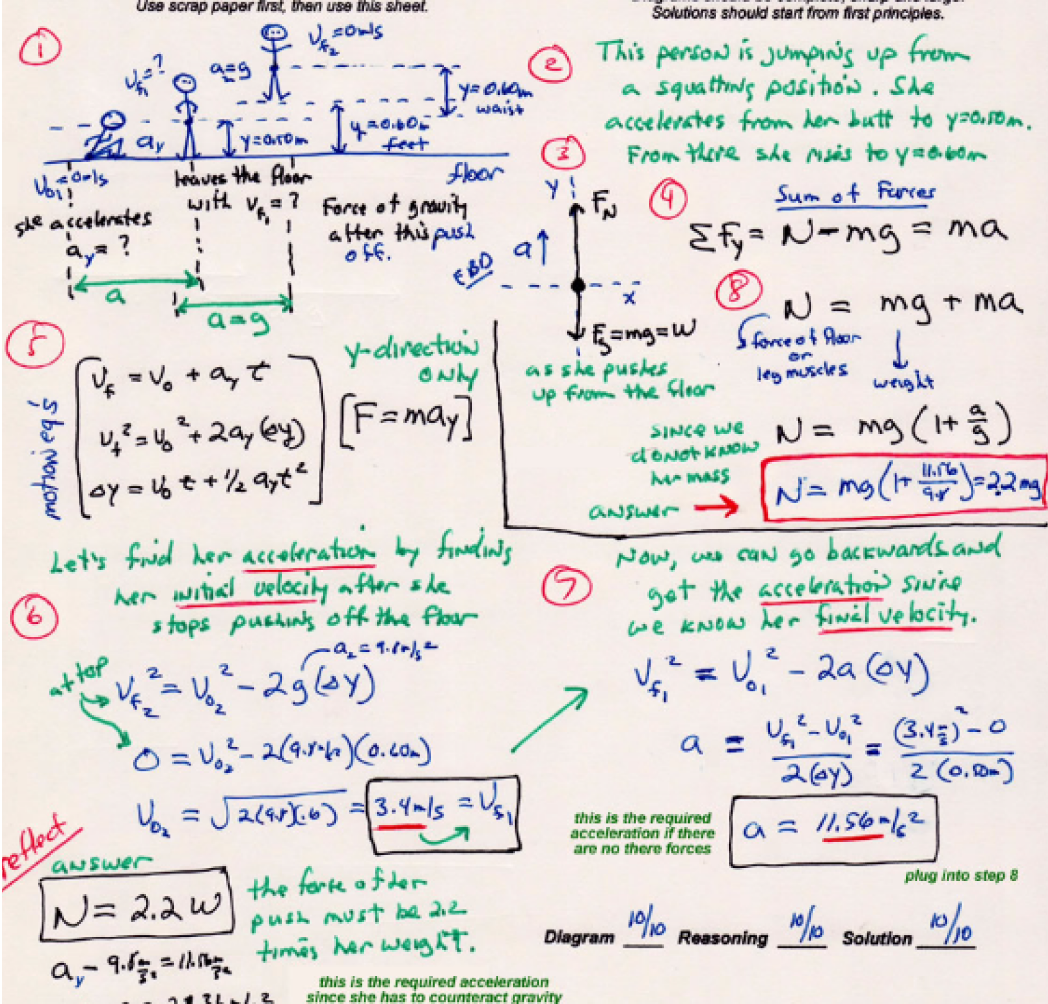 Use scrap paper first, then use this sheet.
Solutions should start from first principles.
1
V_f₂ = 0 m/s
V_f₁ = ?
a = g
a_y
y = 0.50m
y = 0.60m
feet
y = 0.60m
waist
floor
V_01 = 0 m/s
she accelerates
a_y = ?
leaves the floor
with V_f₁ = ?
Force of gravity
after this push
off.
a
a = g
2
This person is jumping up from
a squatting position. She
accelerates from her butt to y=0.50m.
From there she rises to y=0.60m
3
y
F_N
a
FBD
x
F_g = mg = W
as she pushes
up from the floor
4
Sum of Forces
ΣF_y = N - mg = ma
8
N = mg + ma
force of floor
or
leg muscles
weight
N = mg (1 + a/g)
since we
do not know
her mass
answer →
N = mg (1 + 11.56/9.8) = 2.2 mg
5
motion eq's
V_f = V_0 + a_y t
V_f² = V_0² + 2a_y (Δy)
Δy = V_0 t + 1/2 a_y t²
y-direction
only
[F = ma_y]
Let's find her acceleration by finding
her initial velocity after she
stops pushing off the floor
6
at top
a_2 = 9.8 m/s²
V_f₂² = V_0₂² - 2g (Δy)
0 = V_0₂² - 2(9.8 m/s²)(0.60m)
V_0₂ = √2(9.8)(.6) = 3.4 m/s = V_f₁
7
Now, we can go backwards and
get the acceleration since
we know her final velocity.
V_f₁² = V_0₁² - 2a (Δy)
a = (V_f₁² - V_0₁²) / 2(Δy) = ((3.4 m/s)² - 0) / 2(0.50m)
this is the required
acceleration if there
are no there forces
a = 11.56 m/s²
plug into step 8
reflect
answer
N = 2.2 W
the force of her
push must be 2.2
times her weight.
Diagram 10/10 Reasoning 10/10 Solution 10/10
a_y - 9.8 m/s² = 11.56 m/s²
this is the required acceleration
since she has to counteract gravity